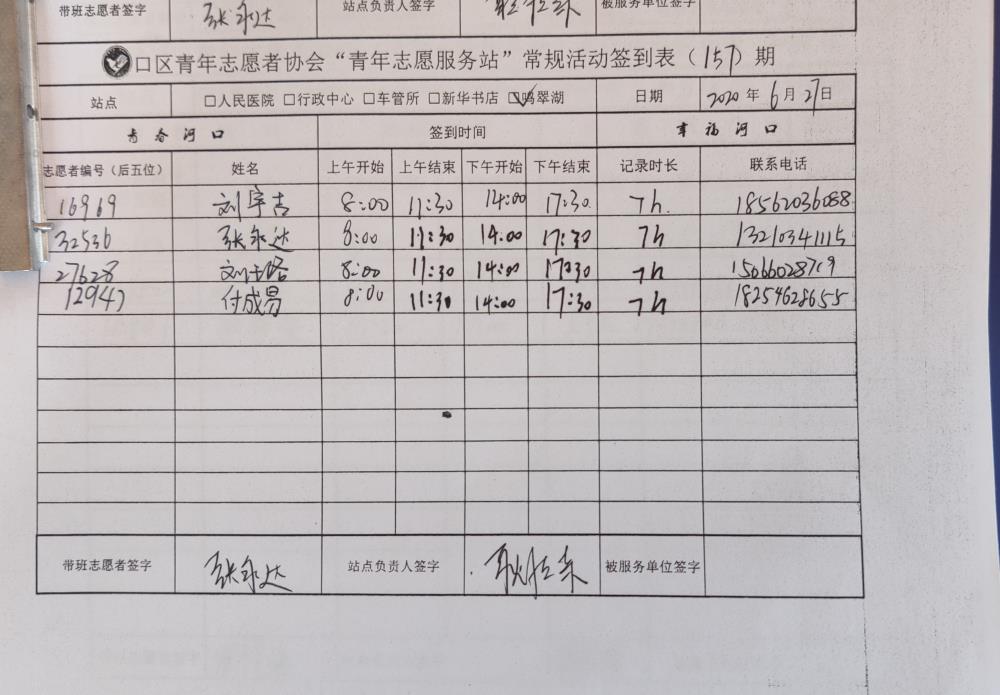 带班志愿者签字 张永达 站点负责人签字 被服务单位签字
口区青年志愿者协会“青年志愿服务站”常规活动签到表(157)期
站点 □人民医院 □行政中心 □车管所 □新华书店 ☑鸣翠湖 日期 2020年6月27日
青春河口 签到时间 幸福河口
志愿者编号(后五位) 姓名 上午开始 上午结束 下午开始 下午结束 记录时长 联系电话
16969 刘宇吉 8:00 11:30 14:00 17:30. 7h. 18562036088
32536 张永达 8:00 11:30 14.00 17:30 7h 13210341115
27628 8:00 11:30 14:00 17:30 7h 15066028719
12947 付成易 8:00 11:30 14:00 17:30 7h 18254628655
带班志愿者签字 张永达 站点负责人签字 被服务单位签字